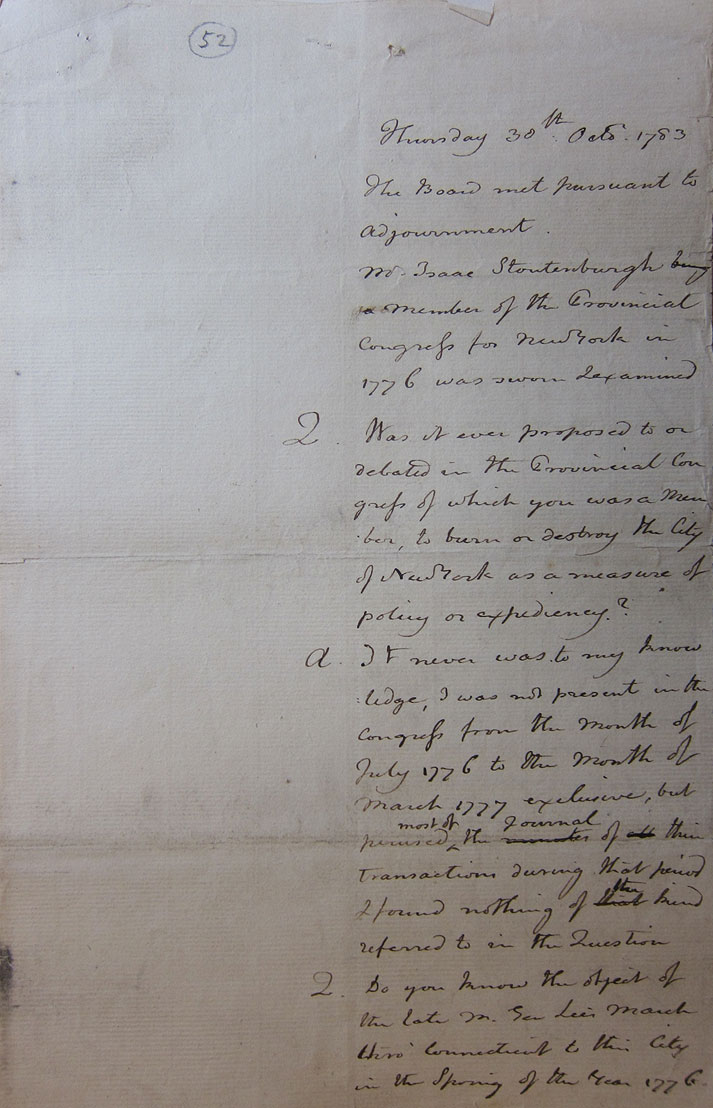 52
Thursday 30th Octo. 1783
The Board met pursuant to
adjournment.
Mr. Isaac Stoutenburgh being
a member of the Provincial
Congress for New York in
1776 was sworn & examined
Q. Was it ever proposed to or
debated in the Provincial Con
gress of which you was a Mem
:ber, to burn or destroy the City
of New York as a measure of
policy or expediency.?
A. It never was to my know
:ledge, I was not present in the
Congress from the Month of
July 1776 to the Month of
March 1777 exclusive, but
most of Journal
perused the minutes of all their
transactions during that period
the
& found nothing of that kind
referred to in the Question
Q. Do you know the object of
the late M. Gen Lee's March
thro' Connecticut to this City
in the Spring of the Year 1776.